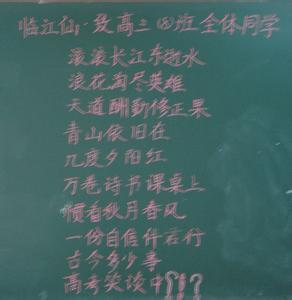 临江仙·致高三⑱班全体同学
滚滚长江东逝水
浪花淘尽英雄
天道酬勤修正果
青山依旧在
几度夕阳红
万卷诗书课桌上
惯看秋月春风
一份自信伴君行
古今多少事
高考笑谈中!!?